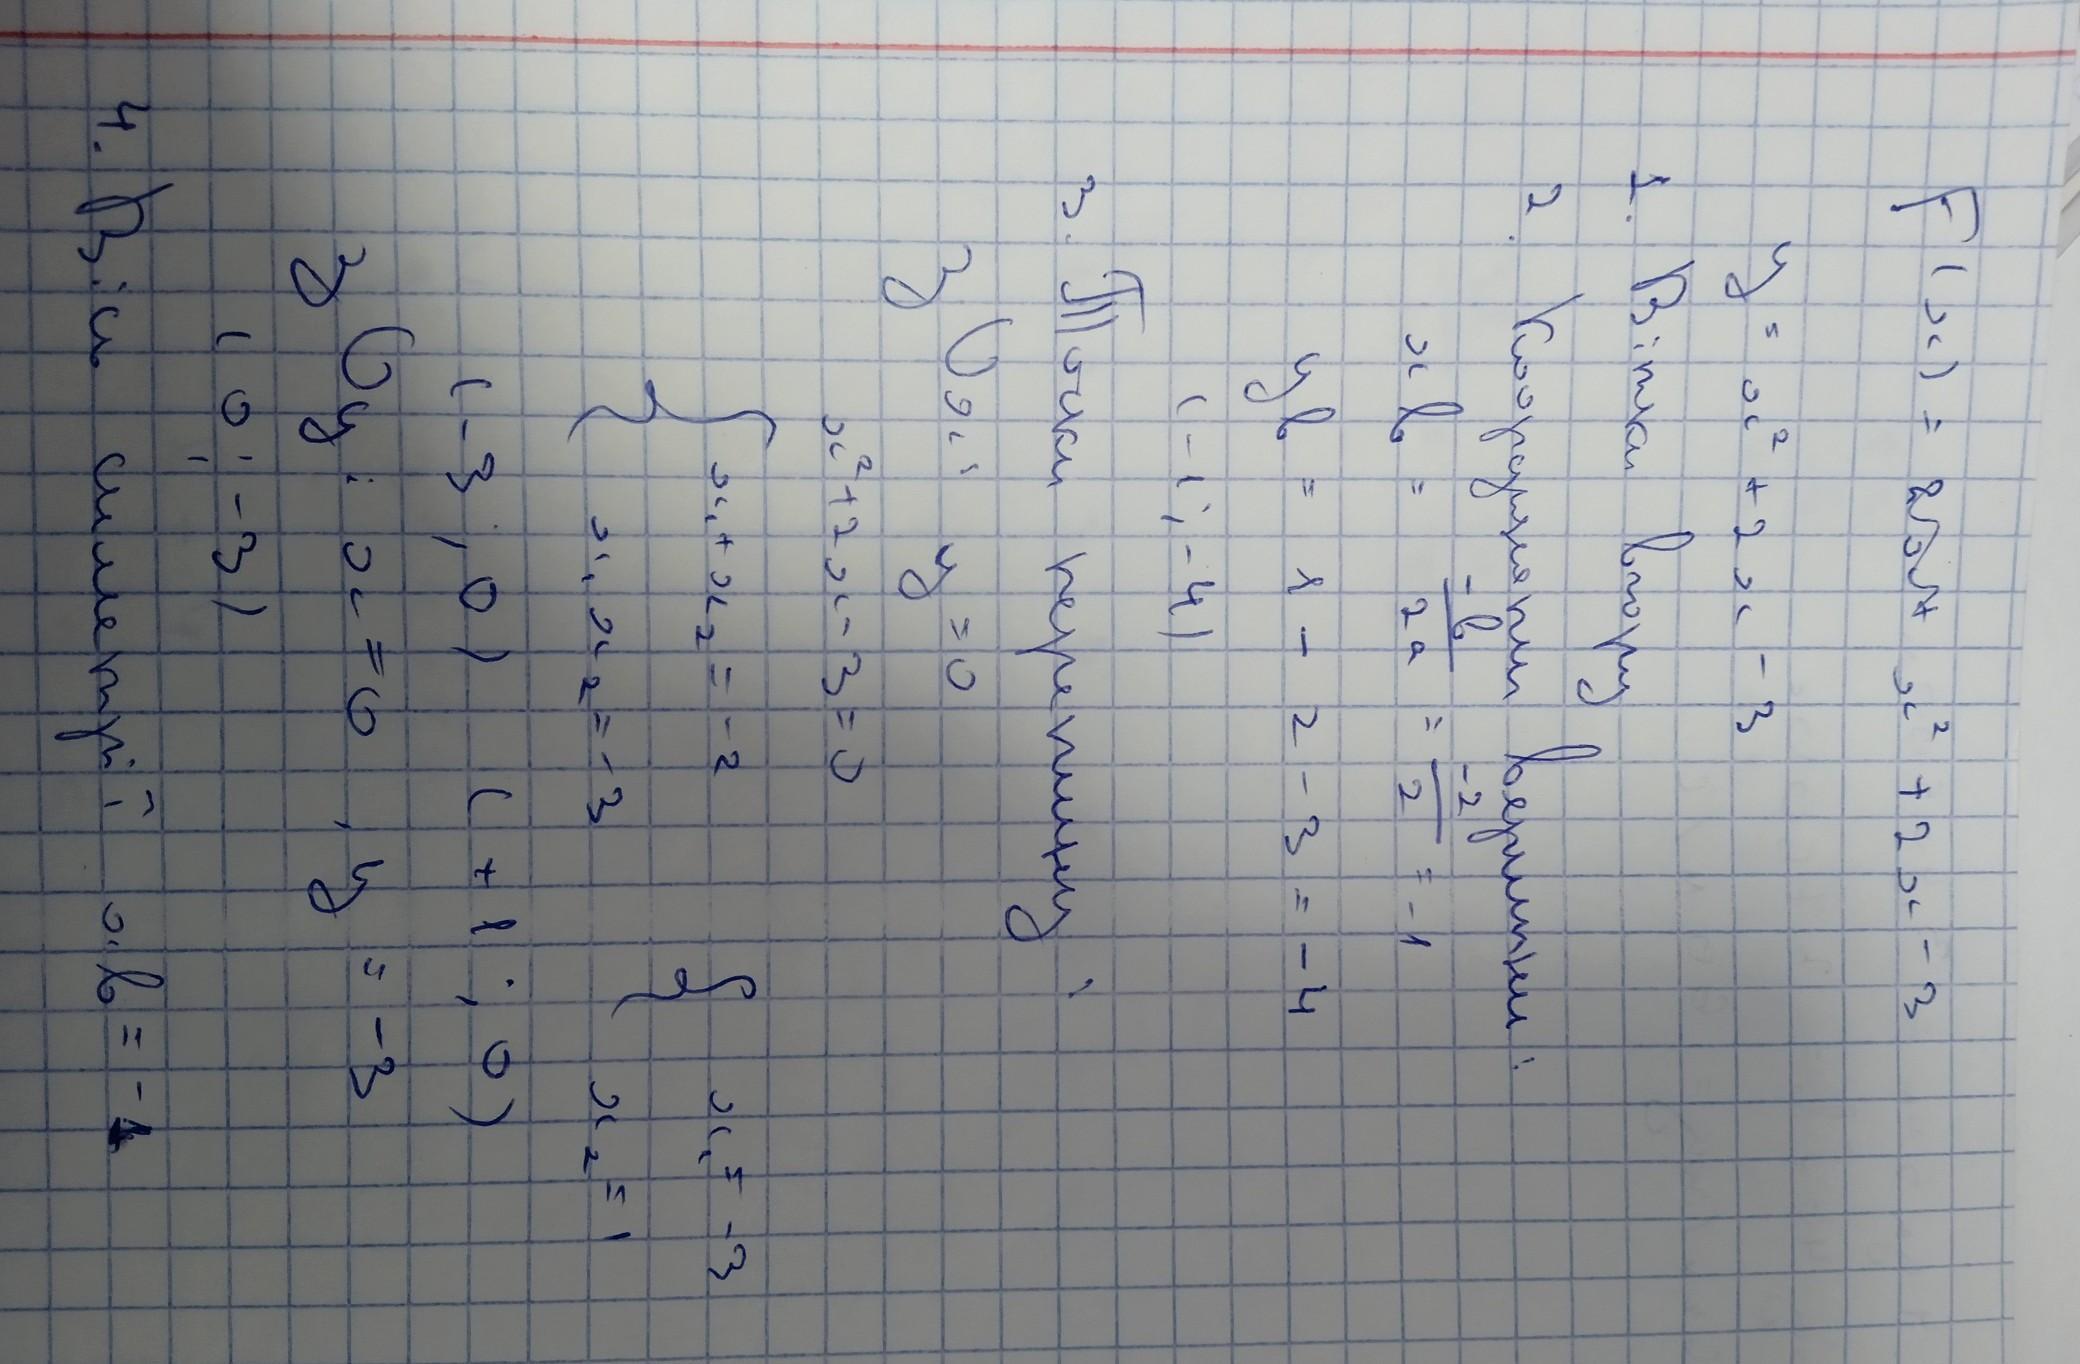 F(x) = x² + 2x - 3
y = x² + 2x - 3
1. Вітки вгору
2. Координати вершини:
xв = -b/2a = -2/2 = -1
yв = 1 - 2 - 3 = -4
(-1; -4)
3. Точки перетину:
З Ox: y = 0
x² + 2x - 3 = 0
{ x₁ + x₂ = -2 { x₁ = -3
x₁ x₂ = -3 x₂ = 1
(-3; 0) (+1; 0)
З Oy: x = 0, y = -3
(0; -3)
4. Вісь симетрії xв = -1